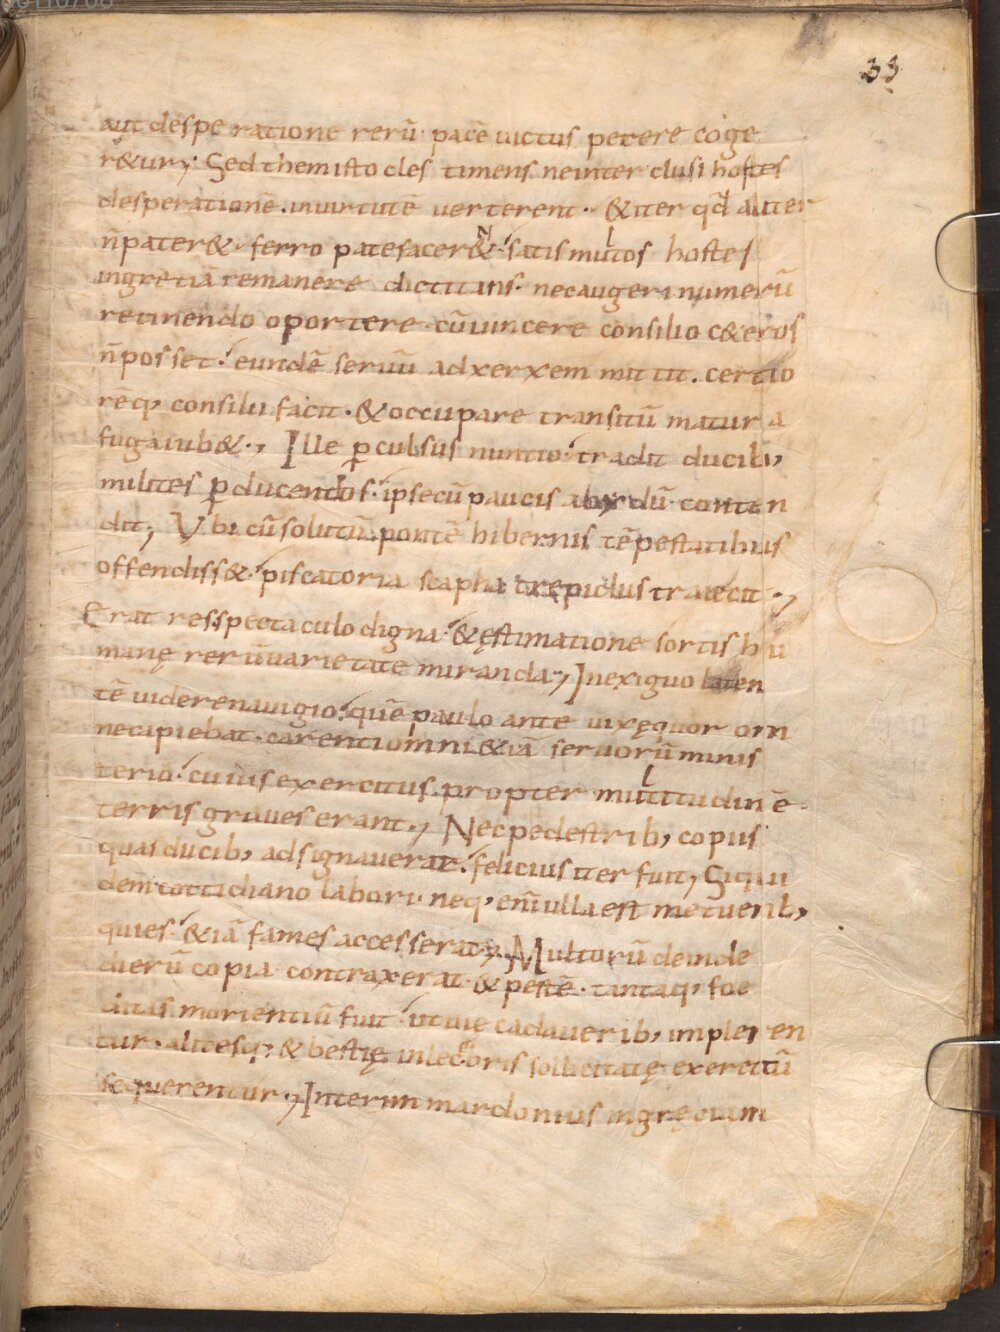 33
aut desperatione rerū pacē uictus petere coge
r&ur; Sed themistocles timens ne inter clusi hostes
desperationē in uirtutē uerterent · & iter qđ aliter
n̄ pater& · ferro patefacer& · satis multos hostes
in gretiā remanere dictitans · nec augeri numerū
retinendo oportere · cū uincere consilio c&eros
n̄ posset · eundē seruū ad xerxem mittit · certio
rēq; consilii facit · & occupare transitū matura
fuga iub& ·, Ille ꝑculsus nuntio · tradit ducib;
milites ꝑducendos · ipse cū paucis abydū conten
dit; Vbi cū solutū pontē hibernis tēpestatibus
offendiss& · piscatoria scapha trepidus traiecit ·,
Erat res spectaculo digna · & ęstimatione sortis hu
manę rerū uarietate miranda; In exiguo laten
tē uidere nauigio · quē paulo ante uix ęquor om
ne capiebat · carentiomni &iā seruorū minis
terio · cuius exercitus · propter multitudinē
terris graues erant ·, Nec pedestrib; copiis
quas ducib; adsignauerat · felicius iter fuit; Siqui
dem cottidiano labori · neq; enī ulla est metuentib;
quies · &iā fames accesserat; Multorū deinde
dierū copia contraxerat & pestē · tantaq; foe
ditas morientiū fuit · ut uię cadauerib; impleren
tur · alitesq; & bestię inlecebris sollicitatę exercitū
sequerentur ·, Interim mardonius in gręciam